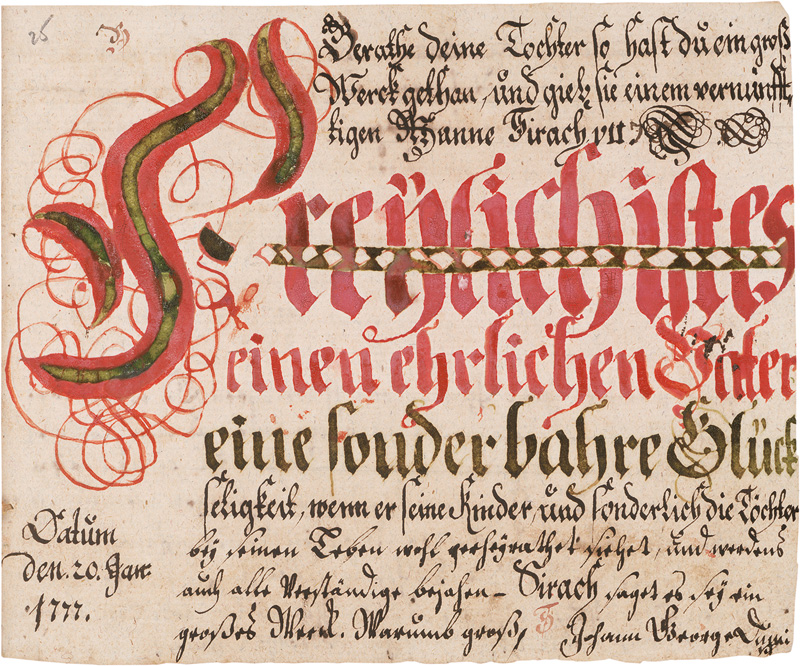 25
Berathe deine Tochter so hast du ein groß
Werck gethan, und gieb sie einem vernünff,,
tigen Manne Sirach VII
Freÿlich istes
einen ehrlichen Vater
eine sonderbahre Glück
seligkeit, wenn er seine Kinder, und sonderlich die Töchter
beÿ seinen Leben wohl verheÿrathet siehet, und werdens
auch alle Verständige bejahen – Sirach saget es seÿ ein
großes Werck. Warumb groß,
Johann George
Datum
den. 20. Jan:
1777.